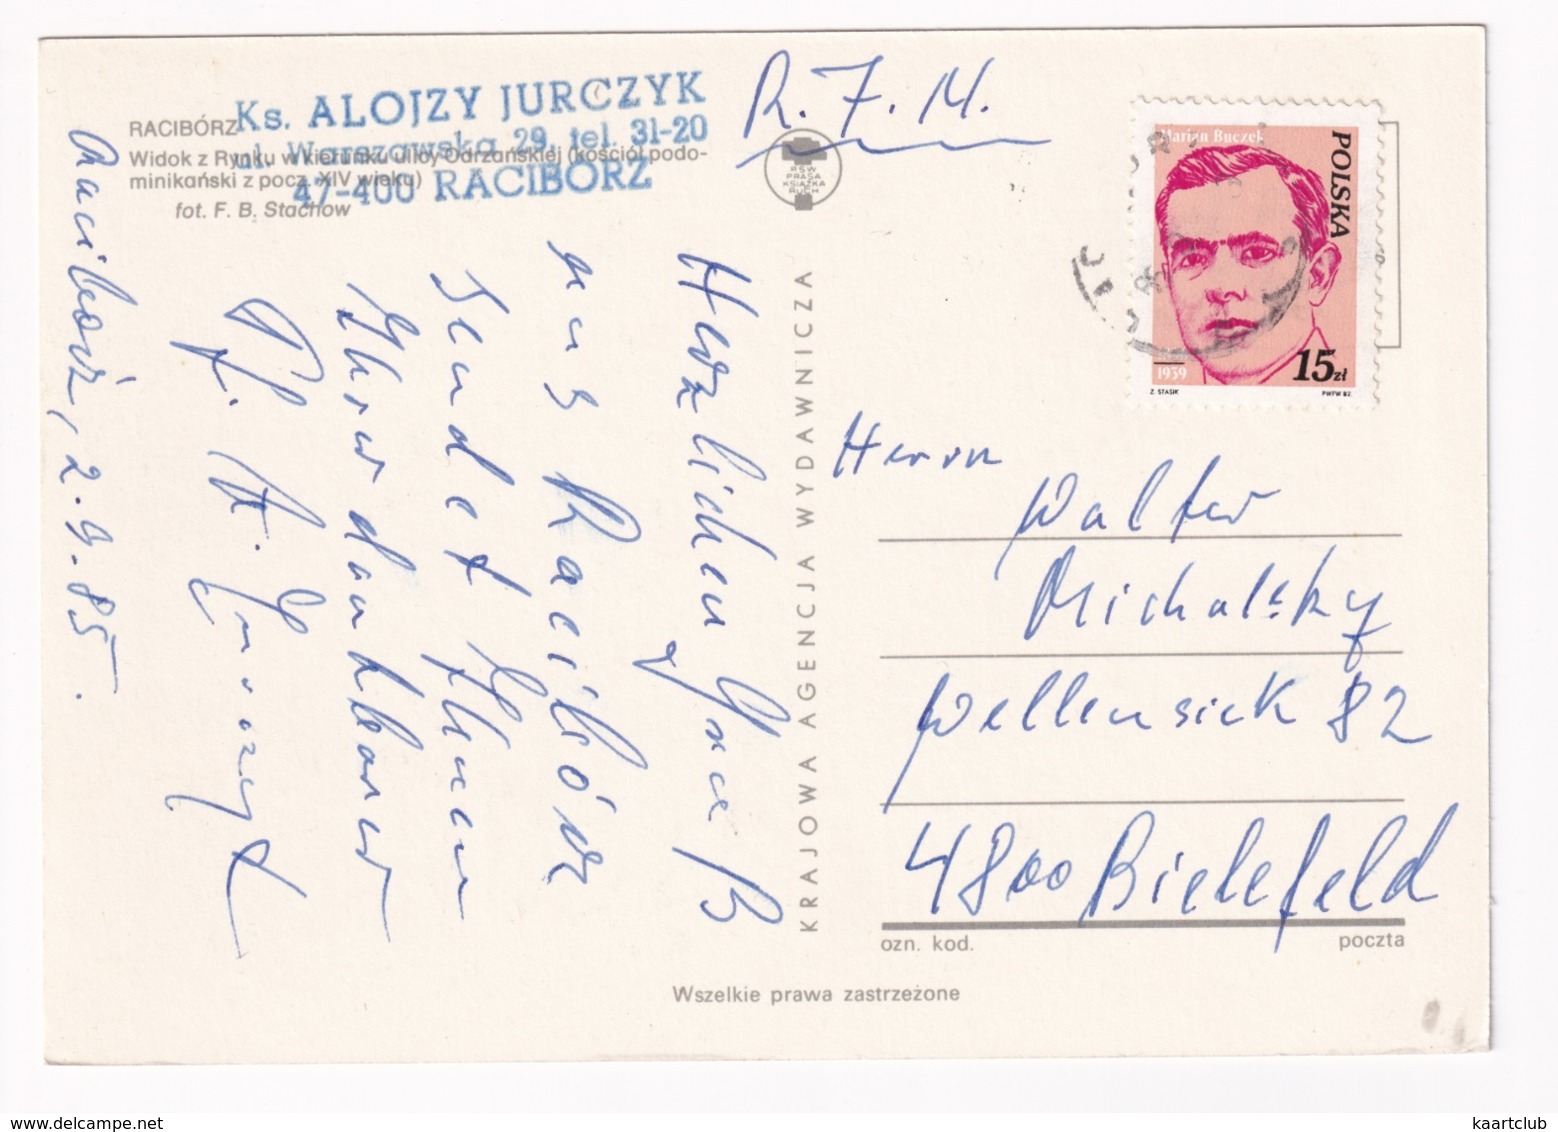 RACIBÓRZ
Widok z Rynku w kierunku ulicy Odrzańskiej (kościół podo-
minikański z pocz. XIV wieku)
fot. F. B. Stachow
Ks. ALOJZY JURCZYK
ul. Warszawska 29, tel. 31-20
47-400 RACIBÓRZ
R. F. N.
RSW
PRASA
KSIĄŻKA
RUCH
Marian Buczek
POLSKA
1939
15 zł
Z. STASIK
PWPW 82
Racibórz, 2.9.85.
Herzlichen Gruß
aus Racibórz
sendet Ihnen
Ihr dankbarer
Pf. A. Jurczyk
KRAJOWA AGENCJA WYDAWNICZA
Herrn
Walter
Michalsky
Wellensiek 82
4800 Bielefeld
ozn. kod.
poczta
Wszelkie prawa zastrzeżone
kaartclub